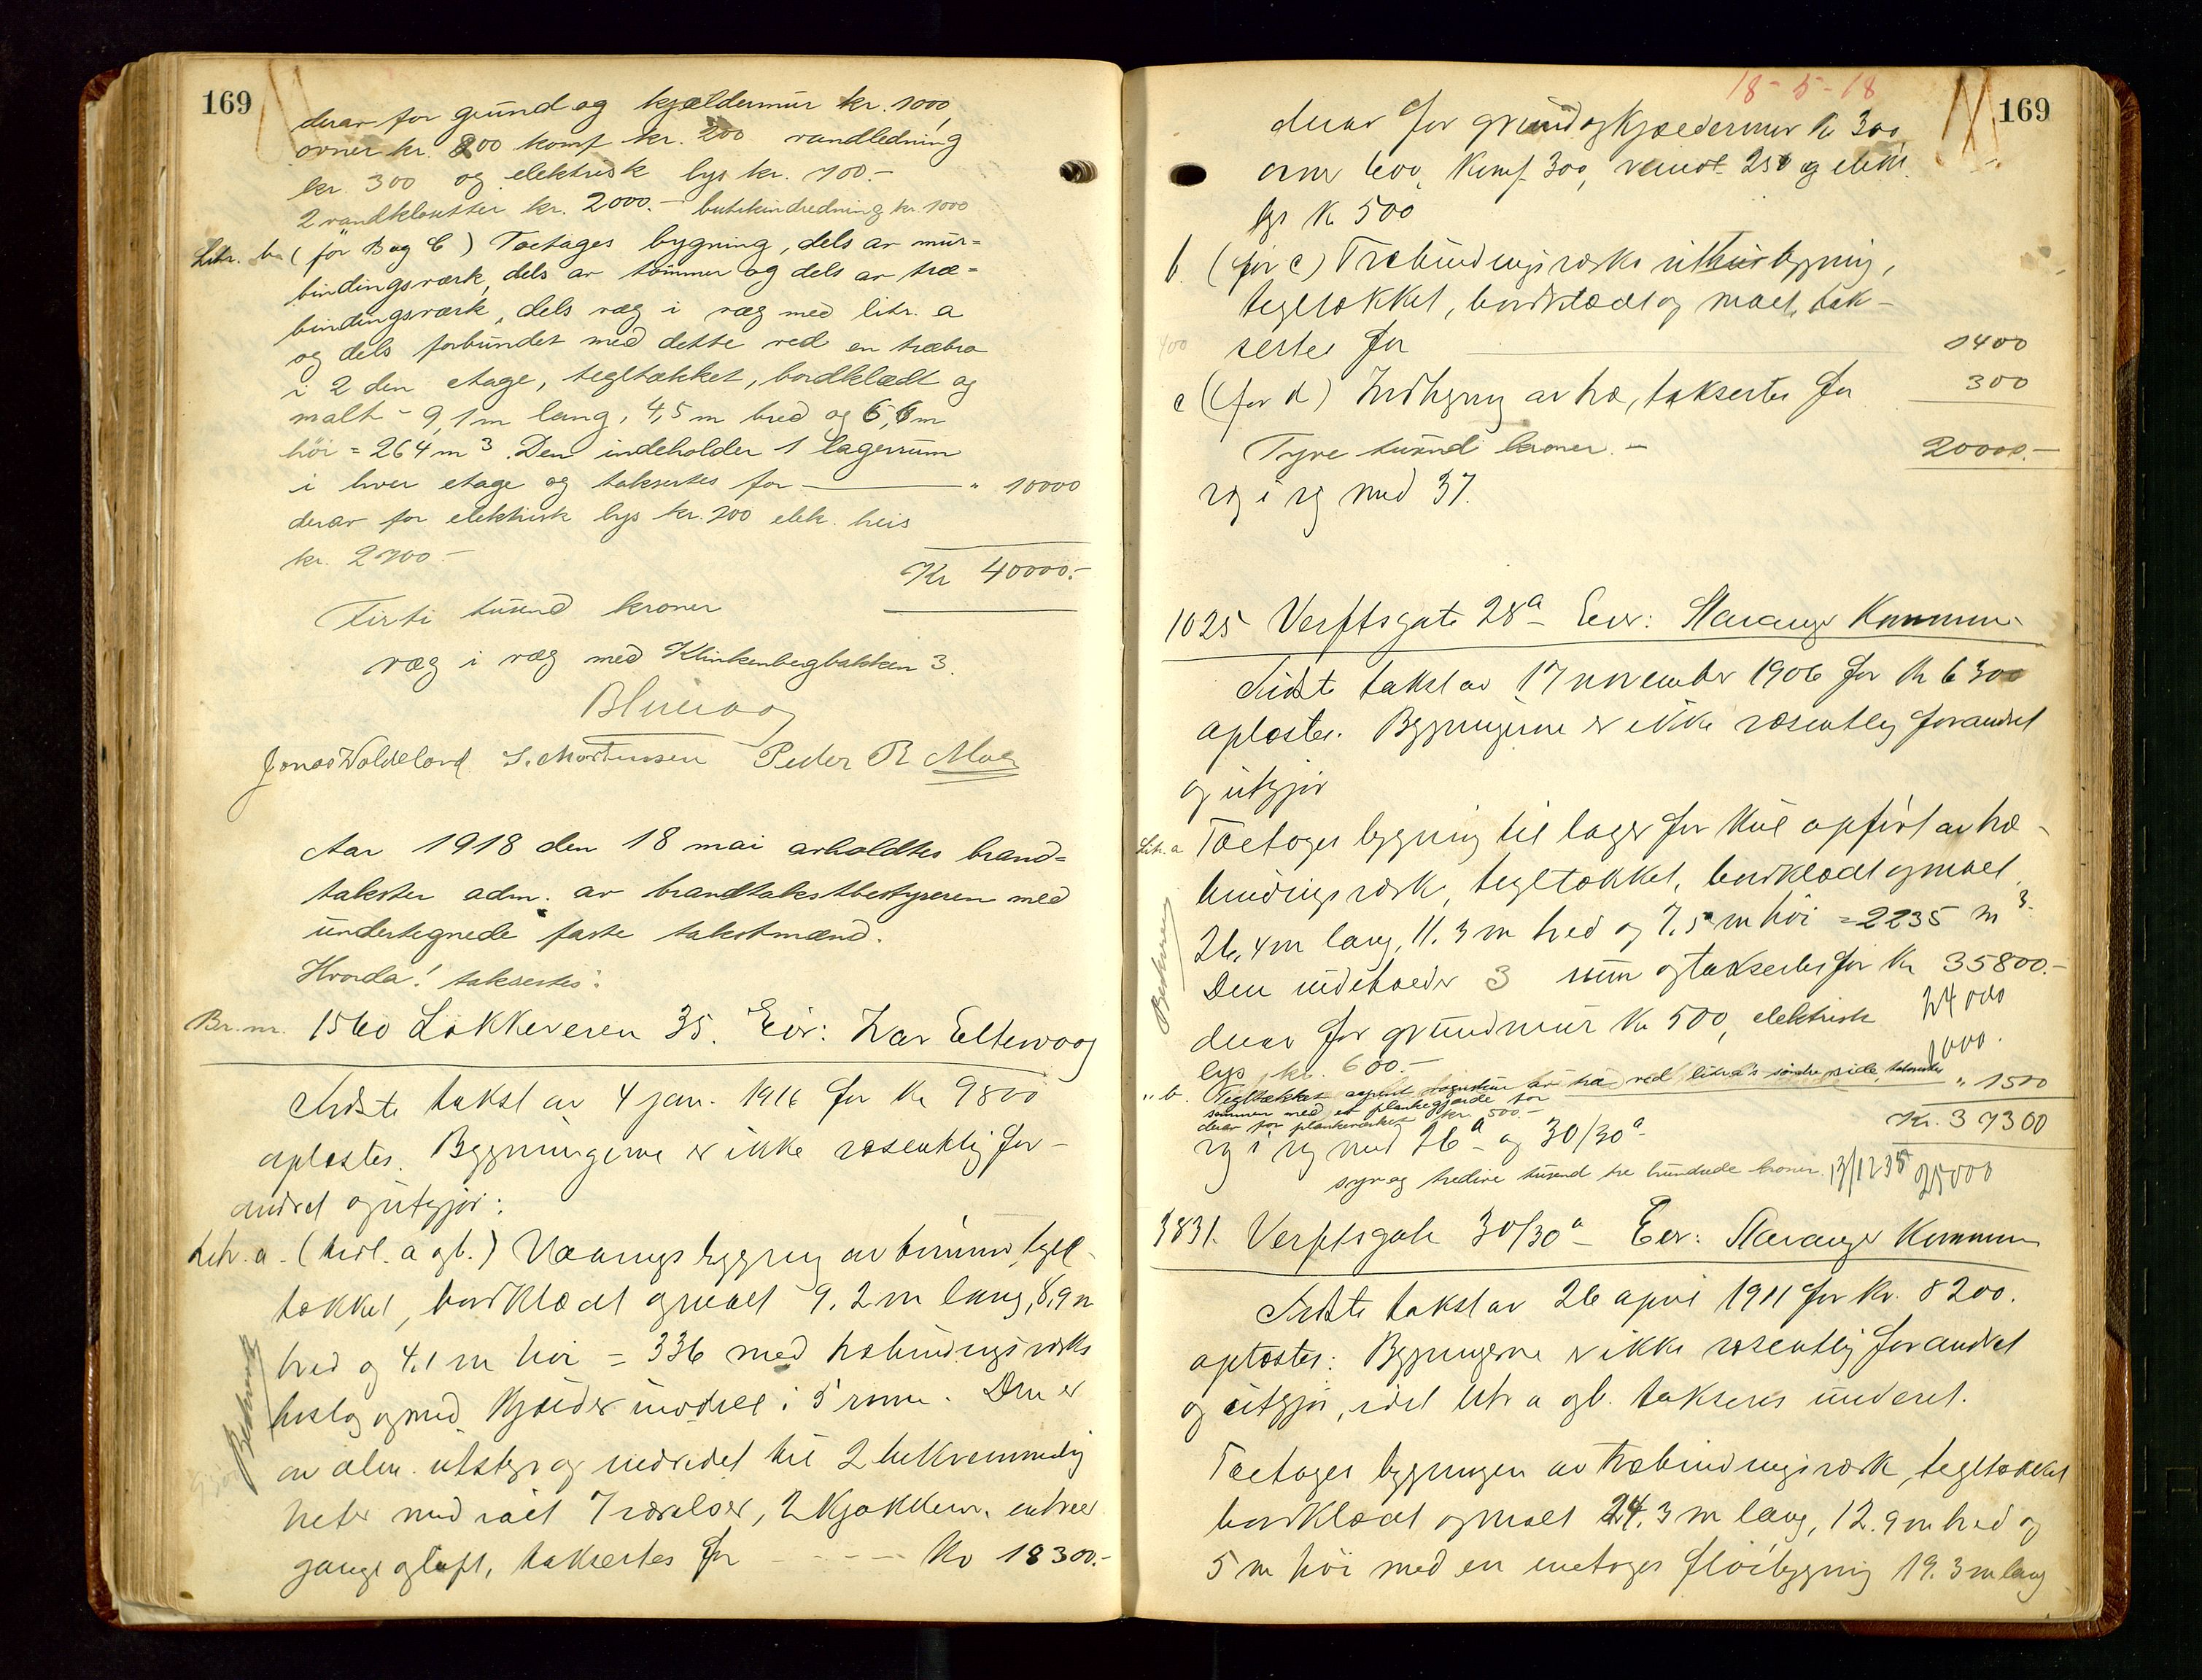 169
derav for grund og kjældermur kr. 1000
ovner kr. 800 komf kr. 200 vandledning
kr. 300 og elektrisk lys kr. 700.-
2 vandklosetter kr. 2000.- butikindredning kr. 1000
Litr. b (før B og C) Toetages bygning, dels av mur-
bindingsværk, dels av tømmer og dels av træ-
bindingsværk, dels væg i væg med litr. a
og dels forbundet med dette ved en træbro
i 2 den etage, tegltækket, bordklædt og
malt - 9,1 m lang, 4,5 m bred og 6,6 m
høi = 264 m3. Den indeholder 1 lagerrum
i hver etage og taksertes for " 10000
derav for elektrisk lys kr. 200 elek. heis
kr. 2700-
Kr 40000.-
Firti tusend kroner
væg i væg med Klinkenbergbakken 3.
Jonas Woldeland S. Mortensen Peder R. Moe
Aar 1918 den 18 mai avholdtes brand-
takster adm. av brandtakstbestyreren med
undertegnede faste takstmænd.
Hvorda! taksertes:
Br. nr. 1560 Løkkeveien 35. Eier: Ivar Eltervaag
Sidste takst av 4 jan. 1916 for kr 9800
oplæstes. Bygningerne er ikke væsentlig for-
andret og utgjør:
Litr. a. (tidl. a og b.) Vaaningsbygning av tømmer, tegl-
tækket, bordklædt og malt 9.2 m lang, 8,9 m
bred og 4.1 m høi = 336 med træbindingsværks
bislag og med kjælder inddelt i 5 rum. Den er
Beskrives
av alm. utstyr og indredet til 2 bekvemmelig
heter med ialt 7 værelser, 2 kjøkken, entreer
gange og loft, taksertes for - - - - Kr 18300.-
18-5-18
169
derav for grund og kjældermur kr 300,
ovner 600, komf 300, vandl. 250 og elektr.
lys kr 500
b. (før c) Træbindingsværks uthusbygning,
tegltækket, bordklædt og malt, tak-
400 sertes for 1400
c (før d) Indhegning av træ, taksertes for 300
Tyve tusend kroner.- 20000.-
væg i væg med 37.
1025 Verftsgate 28a - Eier: Stavanger Kommune
Sidste takst av 17 november 1906 for kr 6300
oplæstes. Bygningerne er ikke væsentlig forandret
og utgjør
Litr. a Toetages bygning til lager for kul opført av træ-
bindingsværk, tegltækket, bordklædt og malt
26,4 m lang, 11.3 m bred og 7,5 m høi = 2235 m3.
Beskrives
Den indeholder 3 rum og taksertes for kr 35800.-
24000
derav for grundmur kr 500, elektrisk
1000.
lys kr. 600.-
" b. Tegltækket aapent vognskur av træ ved litra a's søndre side, taksertes
sammen med et plankegjærde for " 1500
derav for plankeværket kr. 500.-
væg i væg med 26a og 30/30a - Kr. 37300
syv og tredive tusend tre hundrede kroner. 13/12 35 25000
3831. Verftsgate 30/30a - Eier: Stavanger Kommune
Sidste takst av 26 april 1911 for kr. 8200.
oplæstes. Bygningerne er ikke væsentlig forandret
og utgjør, idet litr a og b. takseres under et.
Toetages bygningen av træbindingsværk, tegltækket
bordklædt og malt 24.3 m lang, 12.9 m bred og
5 m høi med en enetages fløibygning 19.3 m lang